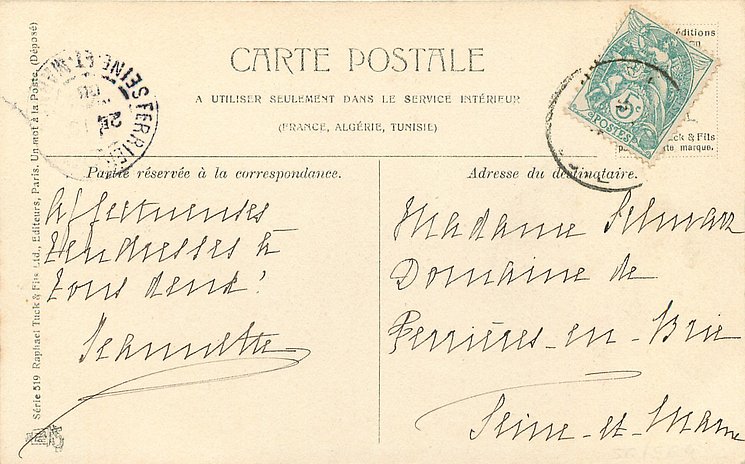 CARTE POSTALE
A UTILISER SEULEMENT DANS LE SERVICE INTÉRIEUR
(FRANCE, ALGÉRIE, TUNISIE)
Partie réservée à la correspondance.
Affectueuses
tendresses à
tous deux!
Jeannette
Adresse du destinataire.
Madame
Domaine de
Ferrières-en-Brie
Seine-et-Marne
Série 519 Raphael Tuck & Fils Ltd., Editeurs, Paris. Un mot à la Poste. (Déposé)
FERRIÈ
SEINE-ET-MA
25
5c
POSTES
éditions
Tuck & Fils
marque.